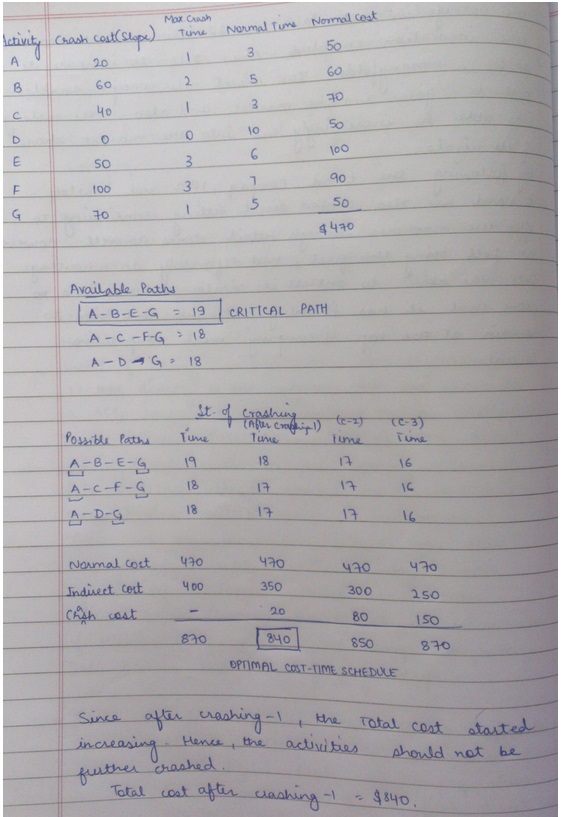 Activity Crash Cost (Slope) Max Crash Time Normal Time Normal Cost
A 20 1 3 50
B 60 2 5 60
C 40 1 3 70
D 0 0 10 50
E 50 3 6 100
F 100 3 7 90
G 70 1 5 50
$470
Available Paths
A-B-E-G = 19 CRITICAL PATH
A-C-F-G = 18
A-D→G = 18
St. of Crashing
Possible Paths Time (After crashing-1) Time (C-2) Time (C-3) Time
A-B-E-G 19 18 17 16
A-C-F-G 18 17 17 16
A-D-G 18 17 17 16
Normal cost 470 470 470 470
Indirect cost 400 350 300 250
Crash cost - 20 80 150
870 840 850 870
OPTIMAL COST-TIME SCHEDULE
Since after crashing-1, the Total cost started
increasing. Hence, the activities should not be
further crashed.
Total cost after crashing-1 = $840.